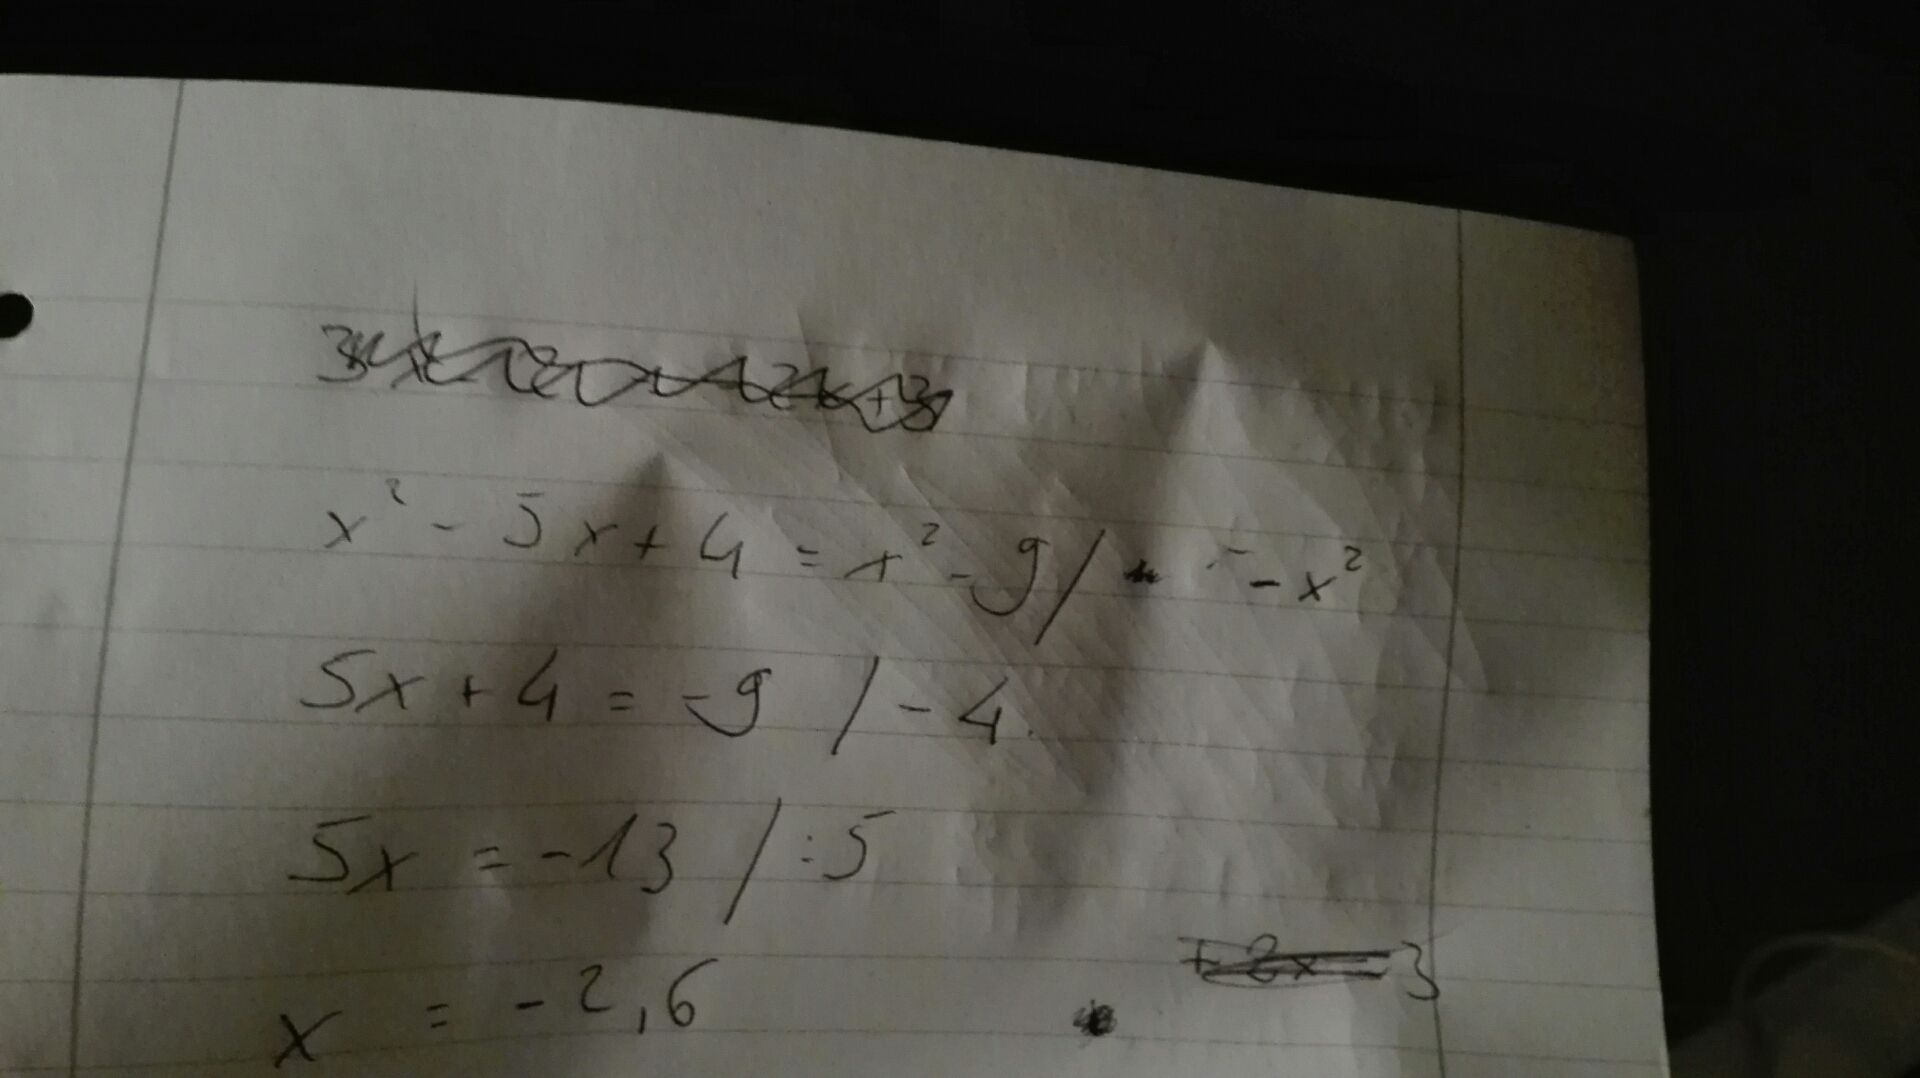 x² - 5x + 4 = x² - 9 / - x²
5x + 4 = -9 / - 4
5x = -13 / :5
x = -2,6